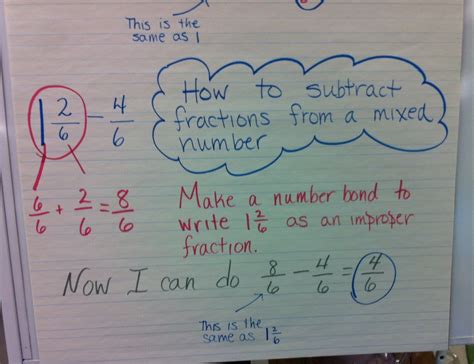 This is the
same as 1
How to subtract
fractions from a mixed
number
1 2/6 - 4/6
6/6 + 2/6 = 8/6
Make a number bond to
write 1 2/6 as an improper
fraction.
Now I can do 8/6 - 4/6 = 4/6
This is the
same as 1 2/6